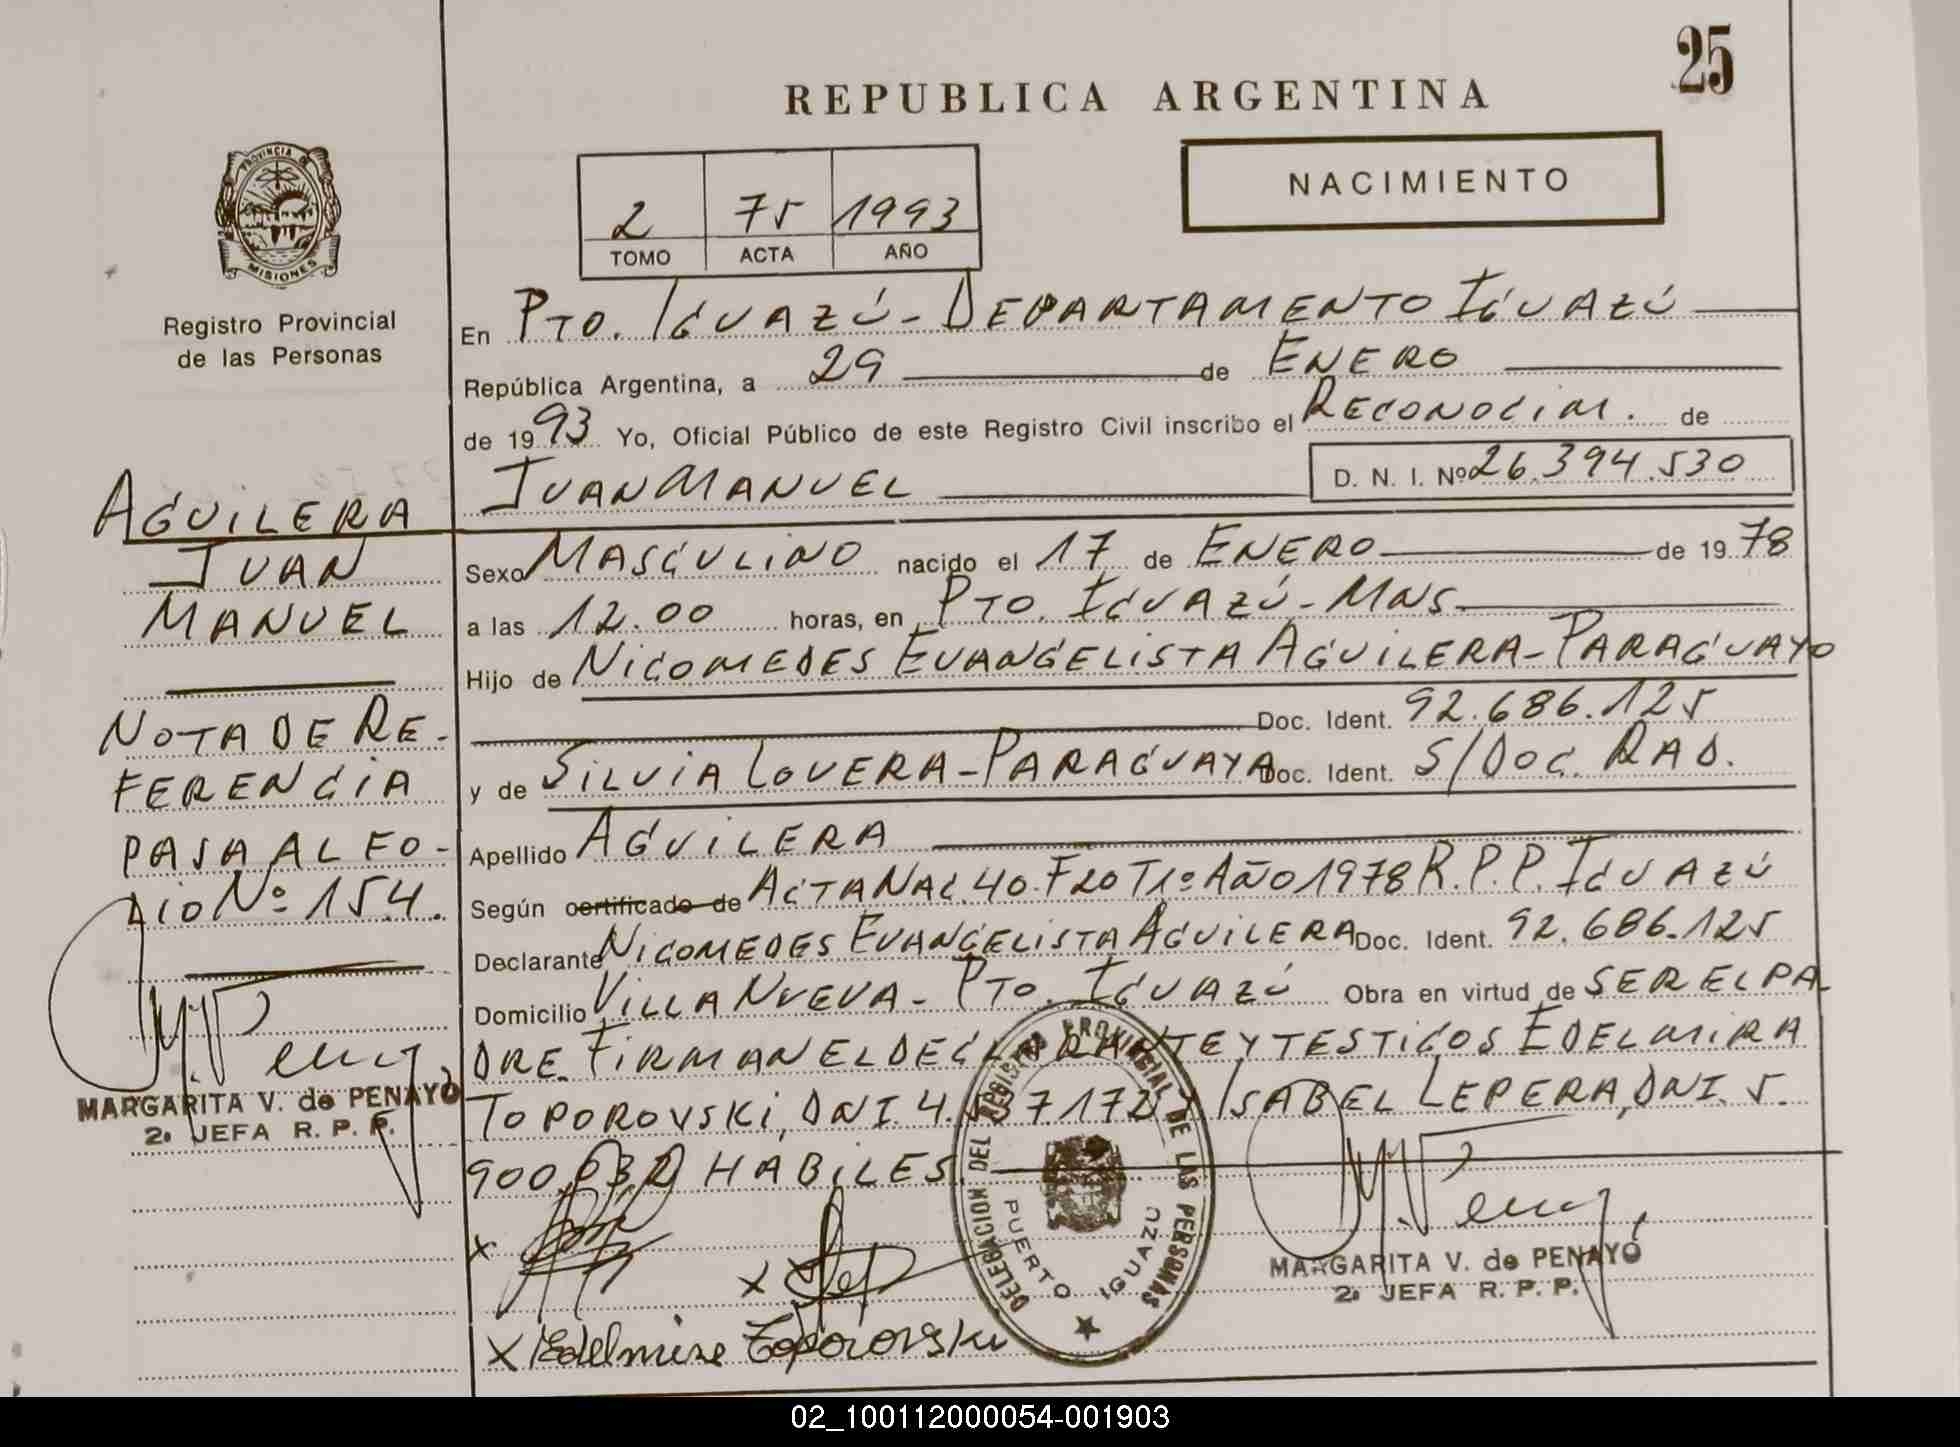 25
REPUBLICA ARGENTINA
NACIMIENTO
2 75 1993
TOMO ACTA AÑO
PROVINCIA DE
MISIONES
Registro Provincial
de las Personas
AGUILERA
JUAN
MANUEL
NOTA DE RE-
FERENCIA
PASA AL FO-
LIO Nº 154.
MARGARITA V. de PENAYO
2ª JEFA R. P. P.
En PTO. IGUAZÚ - DEPARTAMENTO IGUAZÚ
República Argentina, a 29 de ENERO
de 1993 Yo, Oficial Público de este Registro Civil inscribo el RECONOCIM. de
JUAN MANUEL D. N. I. Nº 26.394.530
Sexo MASCULINO nacido el 17 de ENERO de 1978
a las 12.00 horas, en PTO. IGUAZÚ - MNS
Hijo de NICOMEDES EVANGELISTA AGUILERA - PARAGUAYO
Doc. Ident. 92.686.125
y de SILVIA LOVERA - PARAGUAYA Doc. Ident. S/DOC. RAD.
Apellido AGUILERA
Según certificado de ACTA NAC. 40 Fº 20 Tº 1º AÑO 1978 R.P.P. IGUAZÚ
Declarante NICOMEDES EVANGELISTA AGUILERA Doc. Ident. 92.686.125
Domicilio VILLA NUEVA - PTO. IGUAZÚ Obra en virtud de SER EL PA-
DRE. FIRMAN EL DECLARANTE Y TESTIGOS EDELMIRA
TOPOROVSKI, DNI. 4. Y ISABEL LEPERA, DNI. 5.
900.032, HABILES.
DELEGACION DEL REGISTRO PROVINCIAL DE LAS PERSONAS
PUERTO IGUAZU
X
X
X Edelmira Toporovski
MARGARITA V. de PENAYO
2ª JEFA R. P. P.
02_100112000054-001903